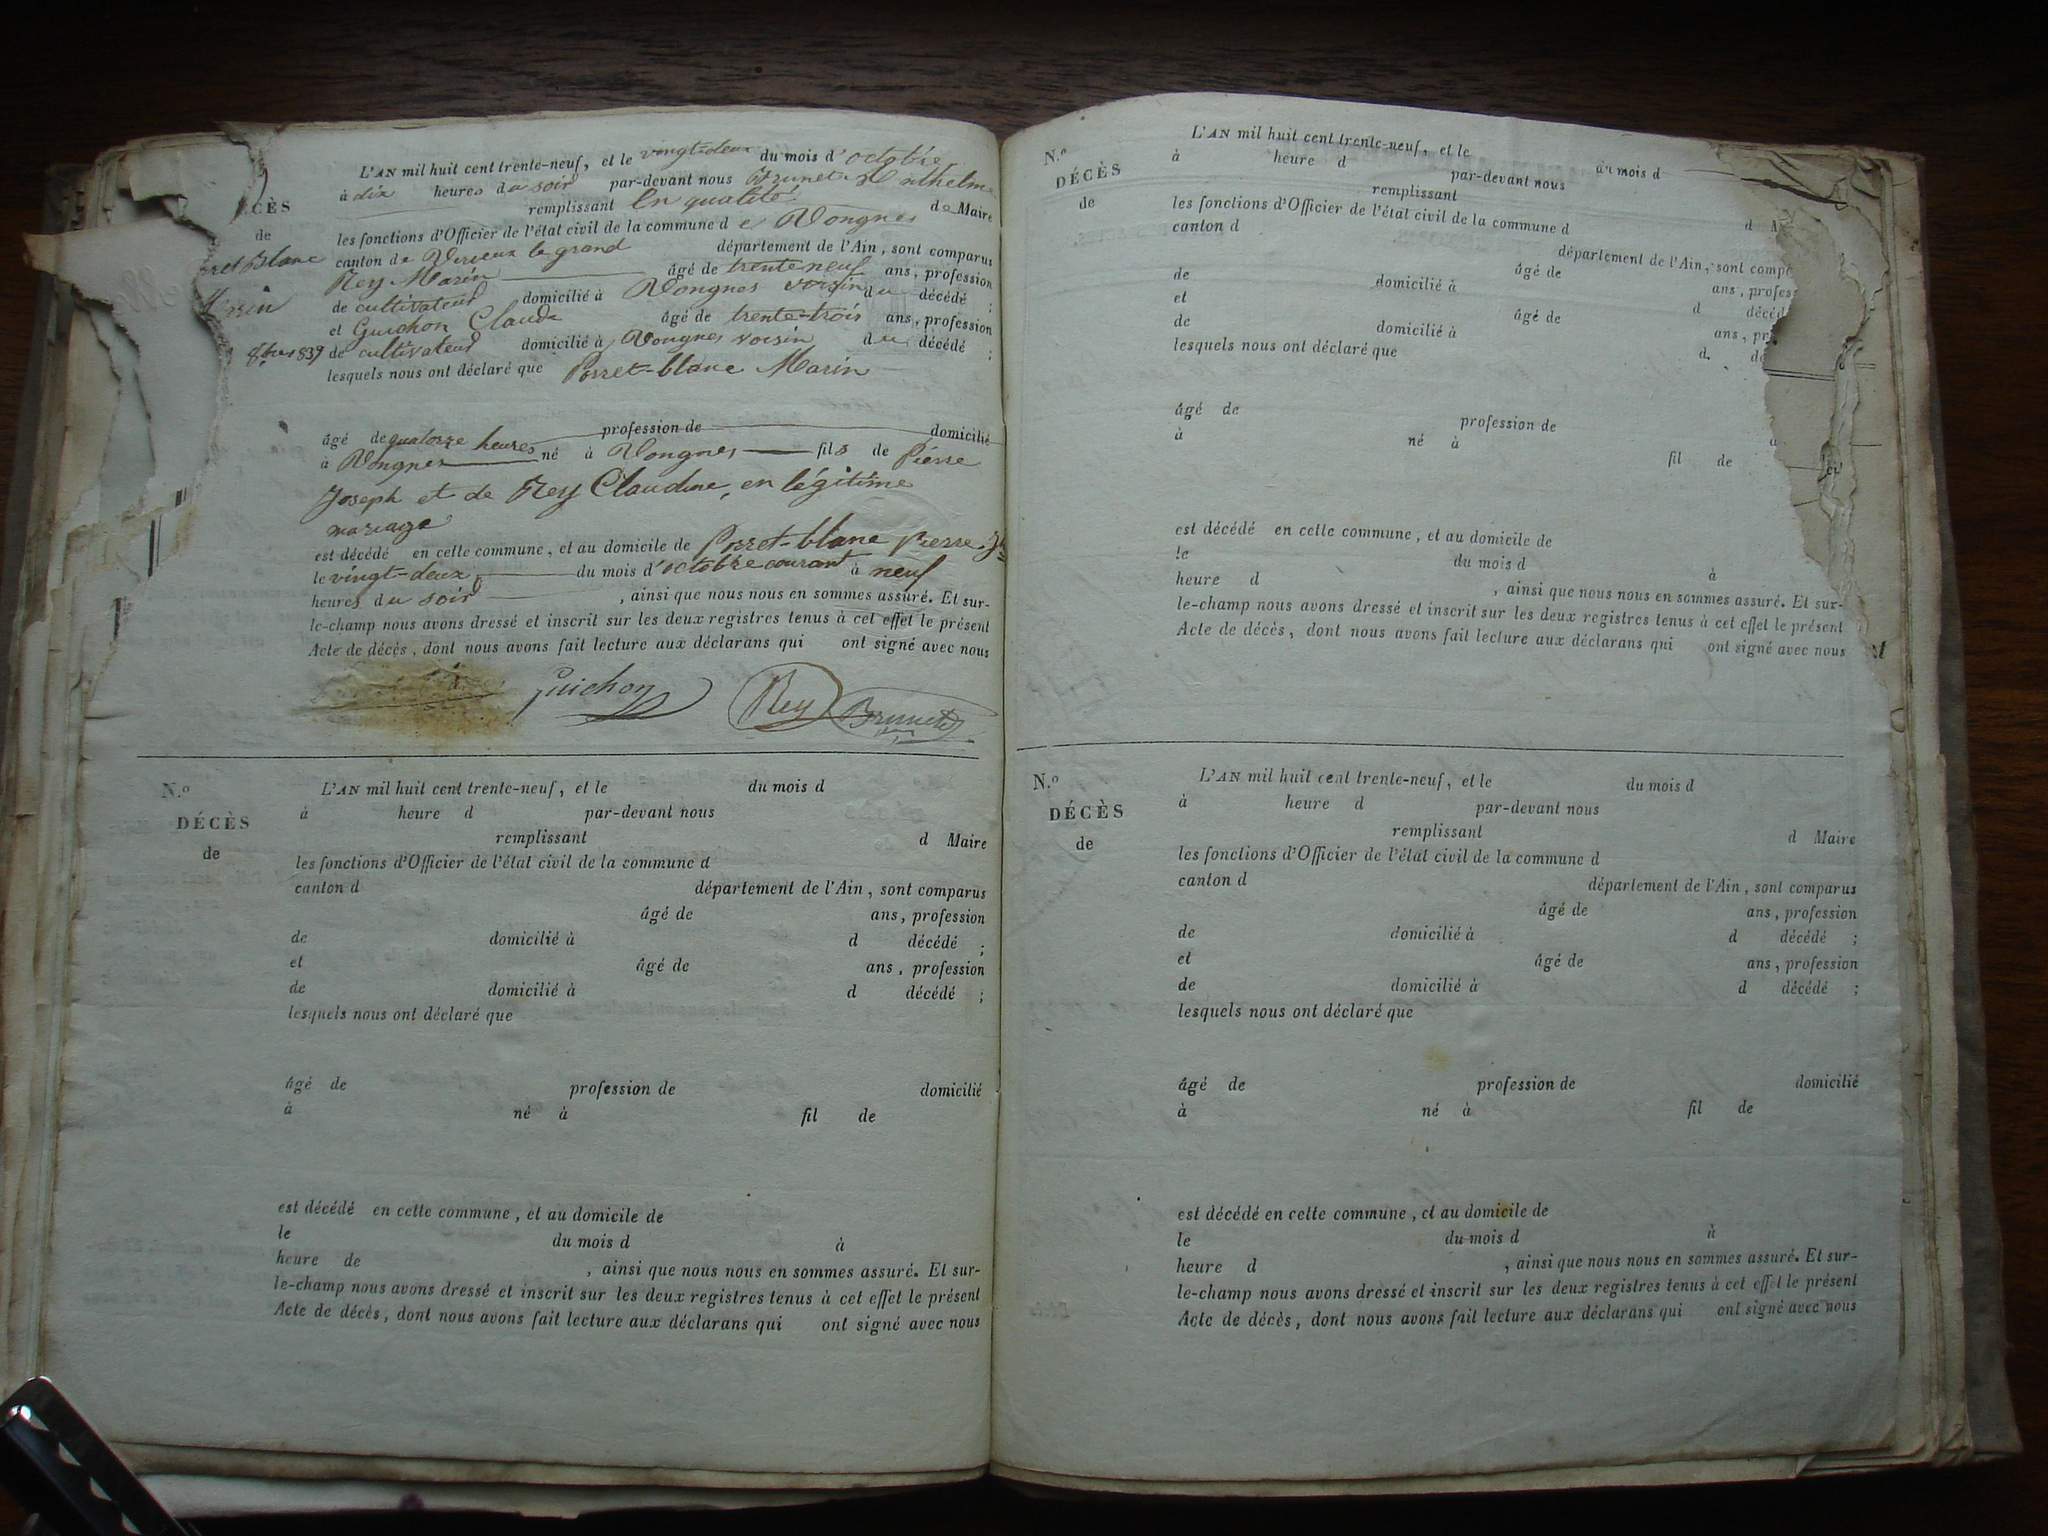 L'AN mil huit cent trente-neuf, et le vingt-deux du mois d'octobre
à dix heures du soir par-devant nous Brunet Anthelme
remplissant en qualité de Maire
les fonctions d'Officier de l'état civil de la commune de Vongnes
canton de Virieux le grand département de l'Ain, sont comparus
Rey Marin âgé de trente neuf ans, profession
de cultivateur domicilié à Vongnes voisin du décédé ;
et Guichon Claude âgé de trente-trois ans, profession
de cultivateur domicilié à Vongnes voisin du décédé ;
lesquels nous ont déclaré que Porret-blanc Marin
âgé de quatorze heures profession de domicilié
à Vongnes né à Vongnes fils de Pierre
Joseph et de Rey Claudine, en légitime
mariage
est décédé en cette commune, et au domicile de Porret-blanc Pierre Jh
le vingt-deux du mois d'octobre courant à neuf
heures du soir, ainsi que nous nous en sommes assuré. Et sur-
le-champ nous avons dressé et inscrit sur les deux registres tenus à cet effet le présent
Acte de décès, dont nous avons fait lecture aux déclarans qui ont signé avec nous
Guichon Rey Brunet
CÈS
de
ret Blanc
Marin
8bre 1839
N.º
DÉCÈS
de
L'AN mil huit cent trente-neuf, et le du mois d
à heure d par-devant nous
remplissant d Maire
les fonctions d'Officier de l'état civil de la commune d
canton d département de l'Ain, sont comparus
âgé de ans, profession
de domicilié à d décédé ;
et âgé de ans, profession
de domicilié à d décédé ;
lesquels nous ont déclaré que
âgé de profession de domicilié
à né à fil de
est décédé en cette commune, et au domicile de
le du mois d à
heure de , ainsi que nous nous en sommes assuré. Et sur-
le-champ nous avons dressé et inscrit sur les deux registres tenus à cet effet le présent
Acte de décès, dont nous avons fait lecture aux déclarans qui ont signé avec nous
N.º
DÉCÈS
de
L'AN mil huit cent trente-neuf, et le du mois d
à heure d par-devant nous
remplissant
les fonctions d'Officier de l'état civil de la commune d d
canton d département de l'Ain, sont comp
âgé de ans, profess
de domicilié à d décéd
et âgé de ans, pr
de domicilié à d. dé
lesquels nous ont déclaré que
âgé de profession de
à né à fil de
est décédé en cette commune, et au domicile de
le du mois d à
heure d , ainsi que nous nous en sommes assuré. Et sur-
le-champ nous avons dressé et inscrit sur les deux registres tenus à cet effet le présent
Acte de décès, dont nous avons fait lecture aux déclarans qui ont signé avec nous
N.º
DÉCÈS
de
L'AN mil huit cent trente-neuf, et le du mois d
à heure d par-devant nous
remplissant d Maire
les fonctions d'Officier de l'état civil de la commune d
canton d département de l'Ain, sont comparus
âgé de ans, profession
de domicilié à d décédé ;
et âgé de ans, profession
de domicilié à d décédé ;
lesquels nous ont déclaré que
âgé de profession de domicilié
à né à fil de
est décédé en cette commune, et au domicile de
le du mois d à
heure d , ainsi que nous nous en sommes assuré. Et sur-
le-champ nous avons dressé et inscrit sur les deux registres tenus à cet effet le présent
Acte de décès, dont nous avons fait lecture aux déclarans qui ont signé avec nous